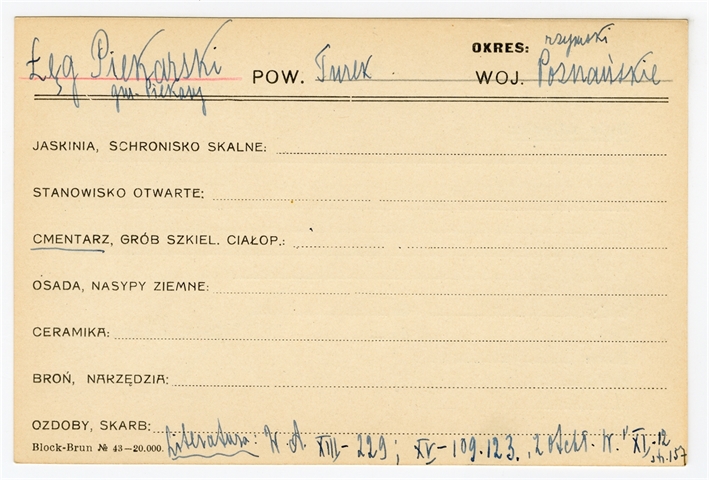 OKRES: rzymski
Łęg Piekarski POW. Turek WOJ. Poznańskie
gm. Piekary
JASKINIA, SCHRONISKO SKALNE:
STANOWISKO OTWARTE:
CMENTARZ, GRÓB SZKIEL. CIAŁOP.:
OSADA, NASYPY ZIEMNE:
CERAMIKA:
BROŃ, NARZĘDZIA:
OZDOBY, SKARB:
Block-Brun № 43—20.000. Literatura: W. A. XIII - 229; XV - 109. 123. „Z Otchł. W." XI - 12
str. 157